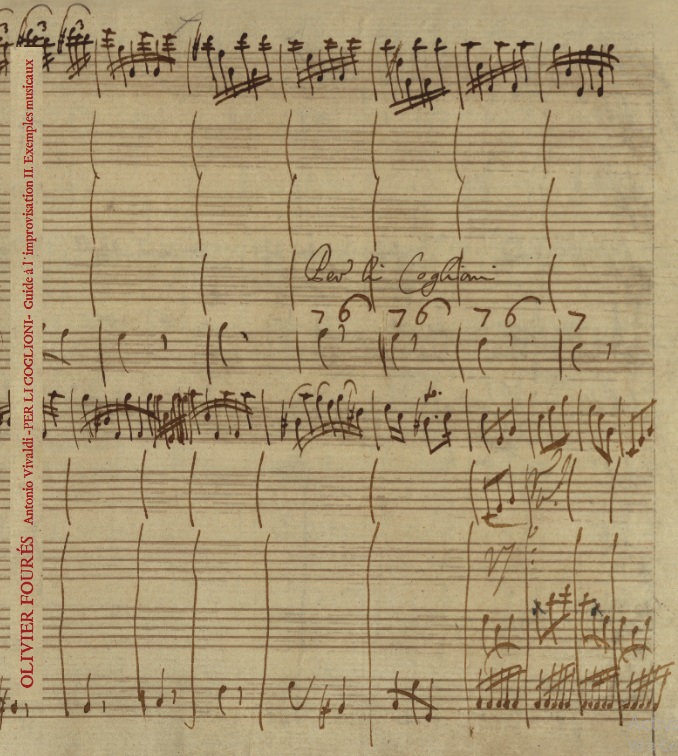 OLIVIER FOURÉS Antonio Vivaldi -PER LI COGLIONI- Guide à l'improvisation II. Exemples musicaux
3 3 3
Per li Coglioni
7 6 7 6 7 6 7